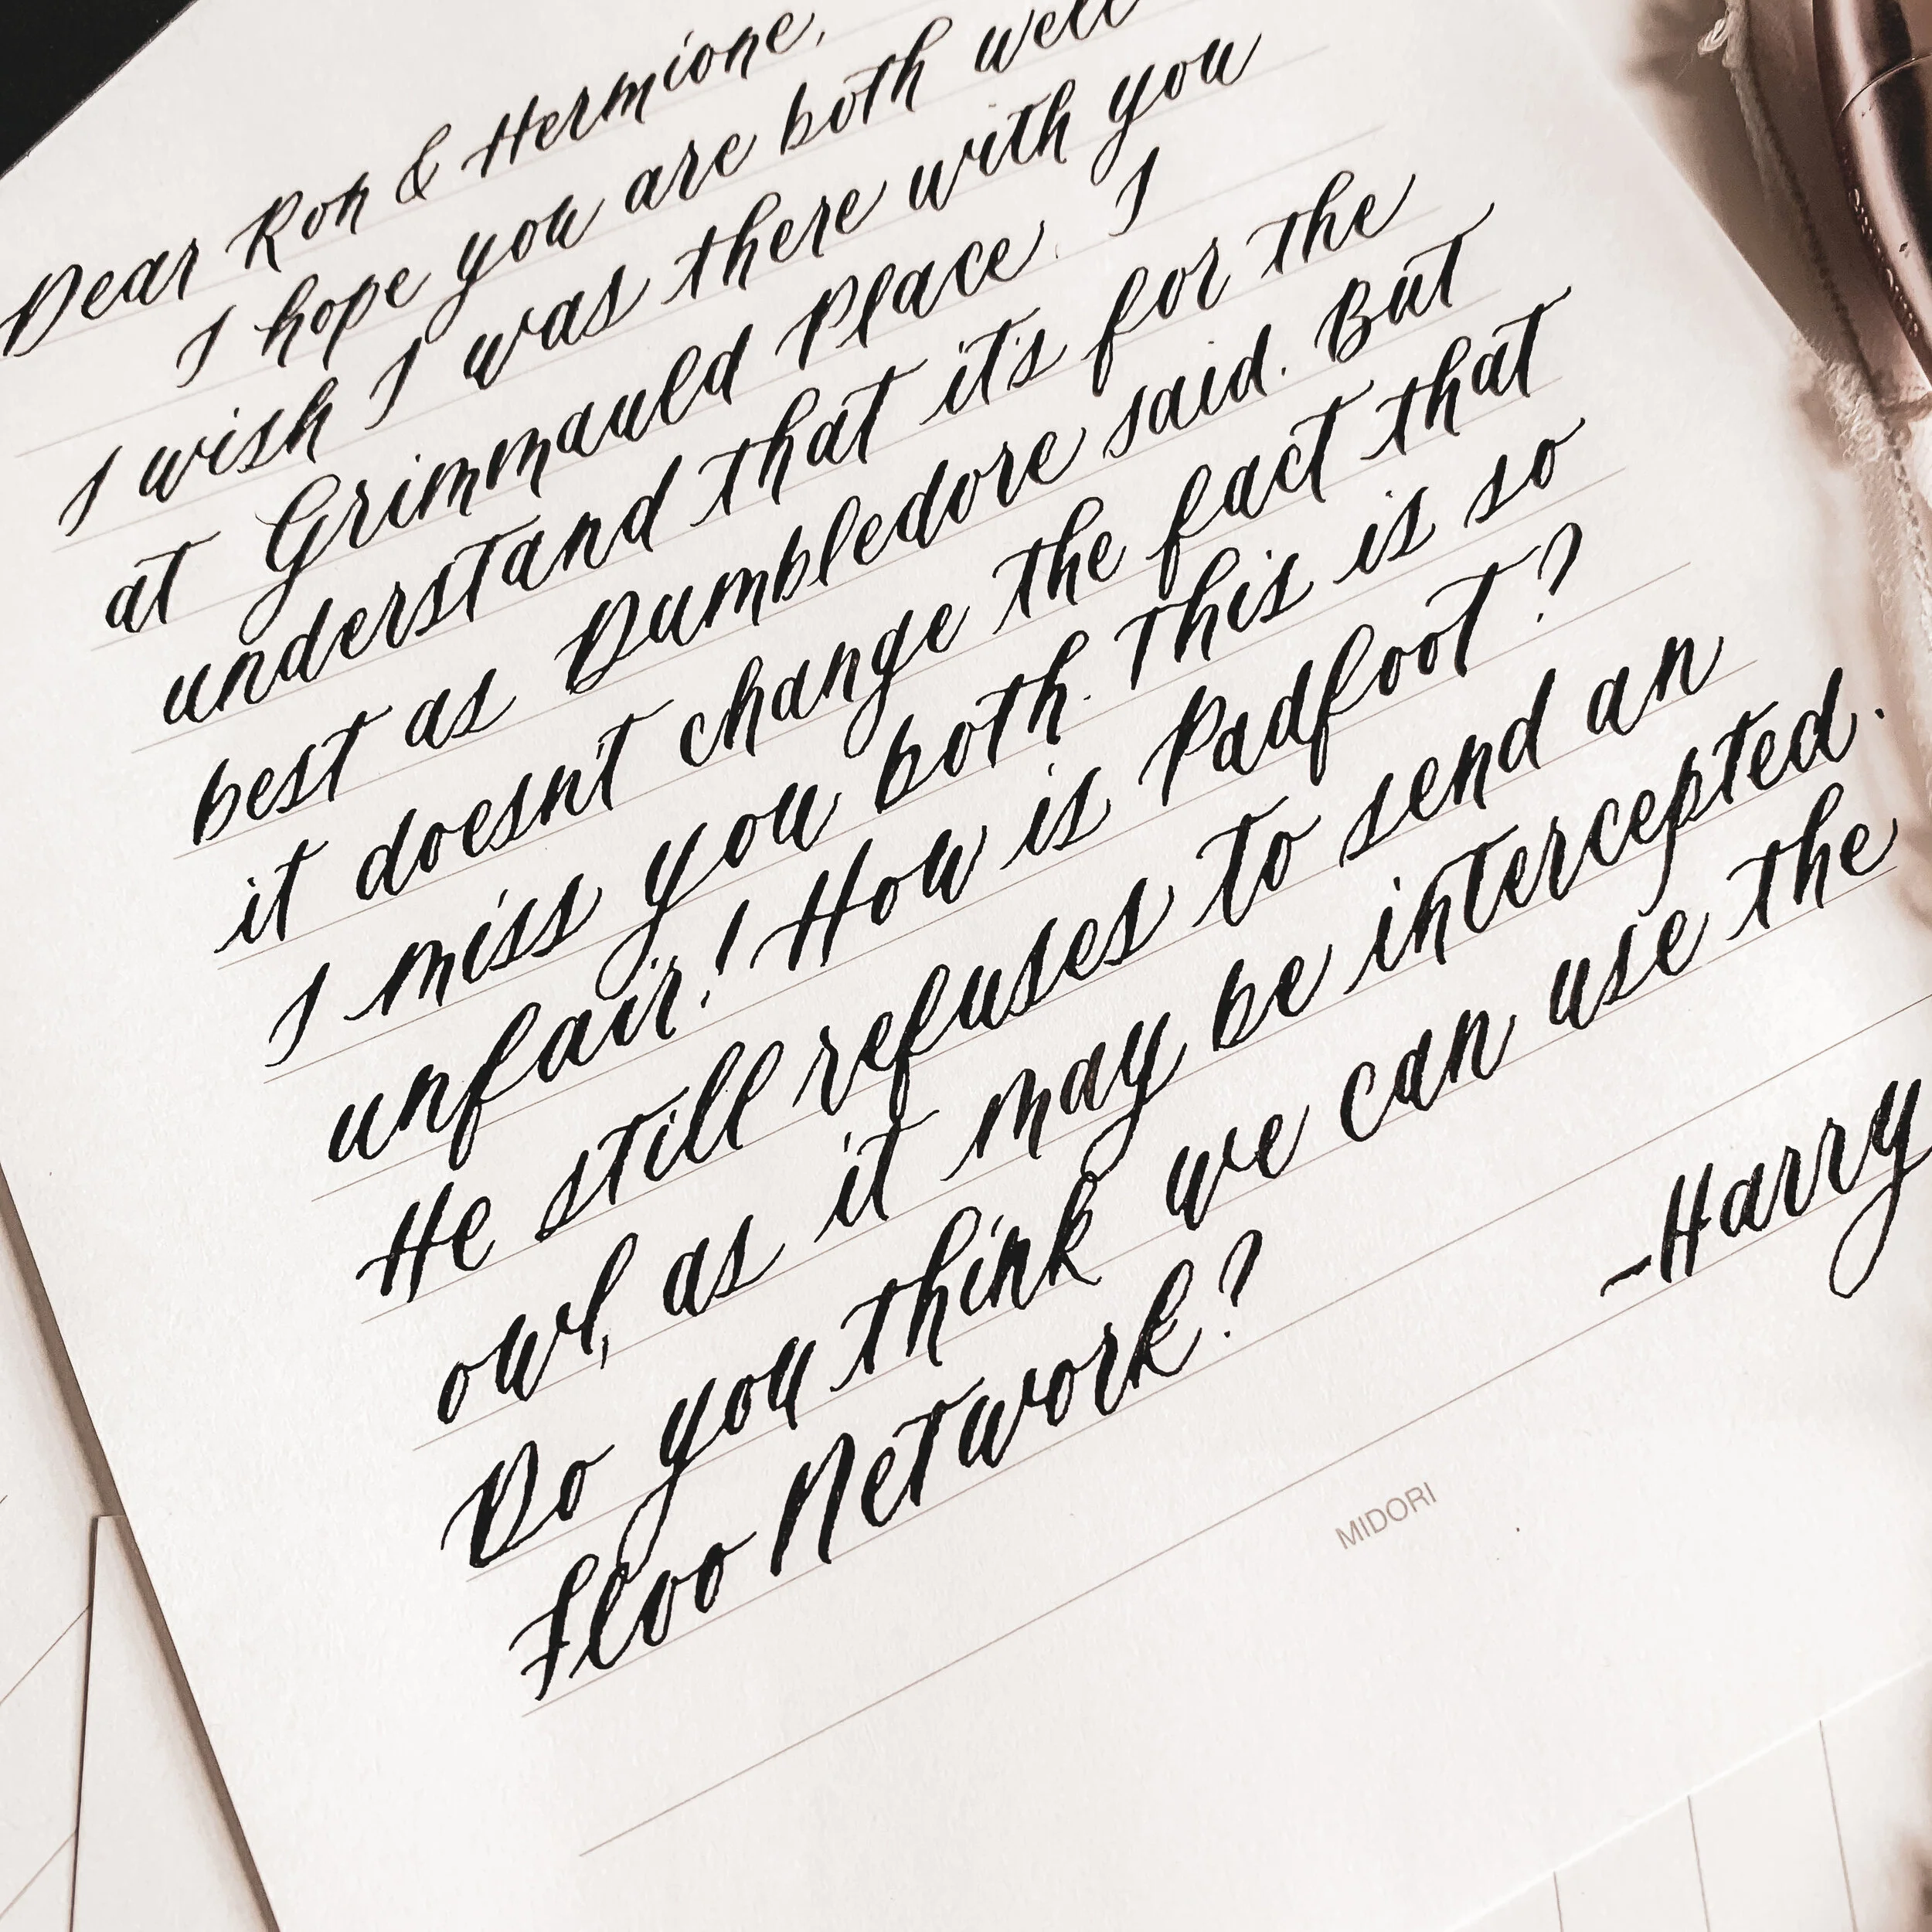 Dear Ron & Hermione,
I hope you are both well
I wish I was there with you
at Grimmauld Place. I
understand that it's for the
best as Dumbledore said. But
it doesn't change the fact that
I miss you both. This is so
unfair! How is Padfoot?
He still refuses to send an
owl, as it may be intercepted.
Do you think we can use the
Floo Network?
-Harry
MIDORI